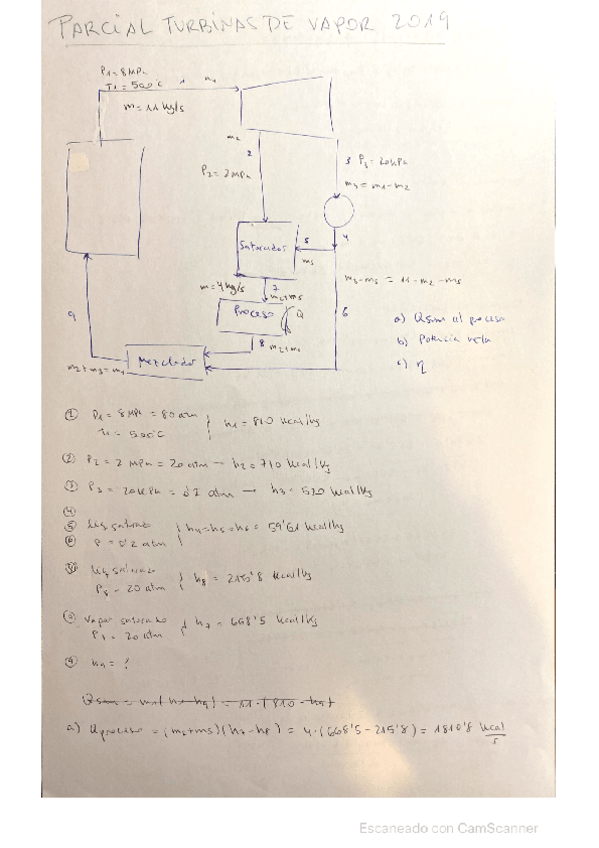 PARCIAL TURBINAS DE VAPOR 2019
P1 = 8 MPa 1 m1
T1 = 500°C
m = 11 kg/s
m2
2
P2 = 2 MPa
3 P3 = 20 kPa
m3 = m1 - m2
Saturador
5
m5
4
m = 4 kg/s
7
m2+m5
m3 - m5 = 11 - m2 - m5
Proceso
Q
6
9
8 m2+m5
Mezclador
m2+m3 = m1
a) Qsum al proceso
b) Potencia neta
c) η
① P1 = 8 MPa = 80 atm
T1 = 500°C
h1 = 810 kcal/kg
② P2 = 2 MPa = 20 atm → h2 = 710 kcal/kg
③ P3 = 20 kPa = 0'2 atm → h3 = 520 kcal/kg
④
⑤ Liq saturado
⑥ P = 0'2 atm
h4 = h5 = h6 = 59'61 kcal/kg
⑧ Liq saturado
P8 = 20 atm
h8 = 215'8 kcal/kg
⑦ Vapor saturado
P7 = 20 atm
h7 = 668'5 kcal/kg
⑨ h9 = ?
Qsum = m1 (h1 - h9) = 11 · (810 - h9)
a) Qproceso = (m2+m5)(h7 - h8) = 4·(668'5 - 215'8) = 1810'8 kcal/s
Escaneado con CamScanner